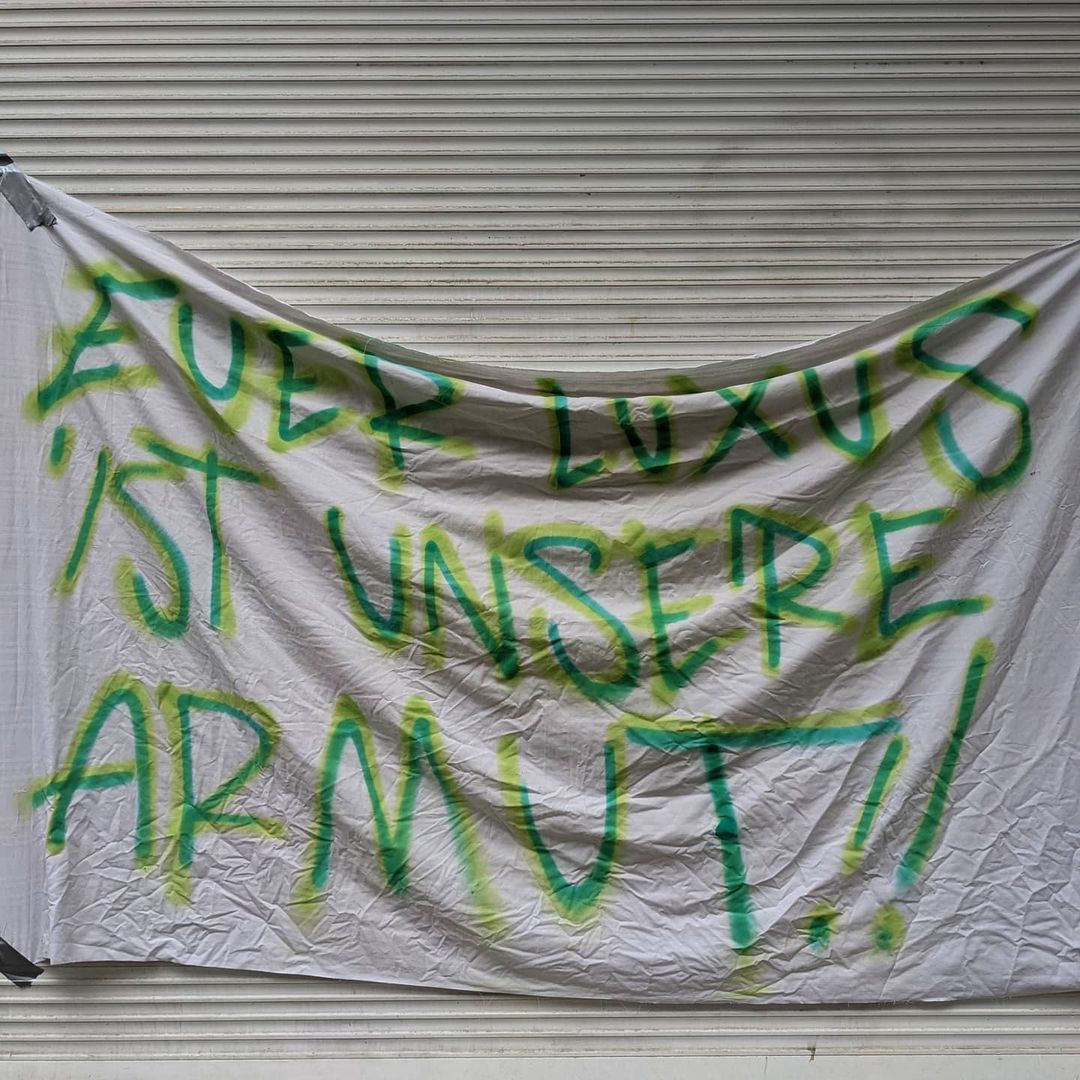 EUER LUXUS
IST UNSERE
ARMUT!!